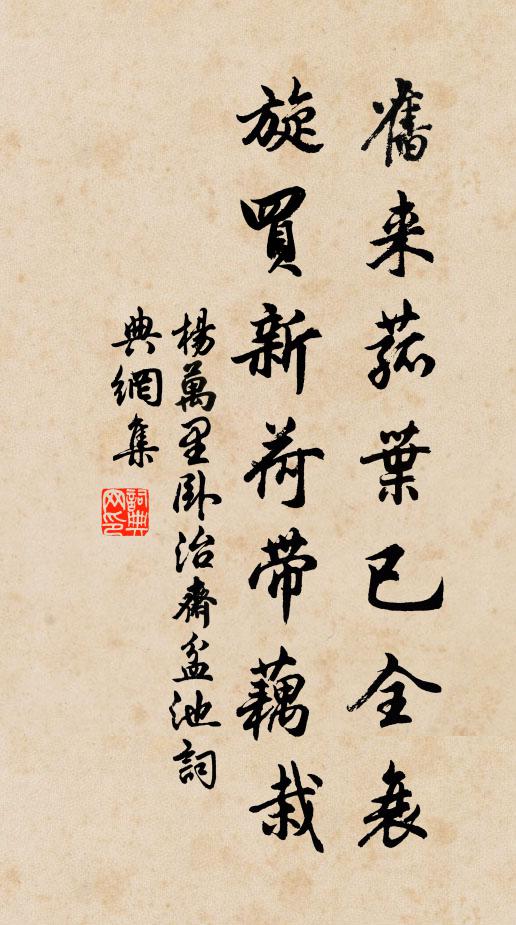 舊来菰葉已全衰
旋買新荷帶藕栽
楊萬里卧治齋盆池詞
典網集
詞典網印